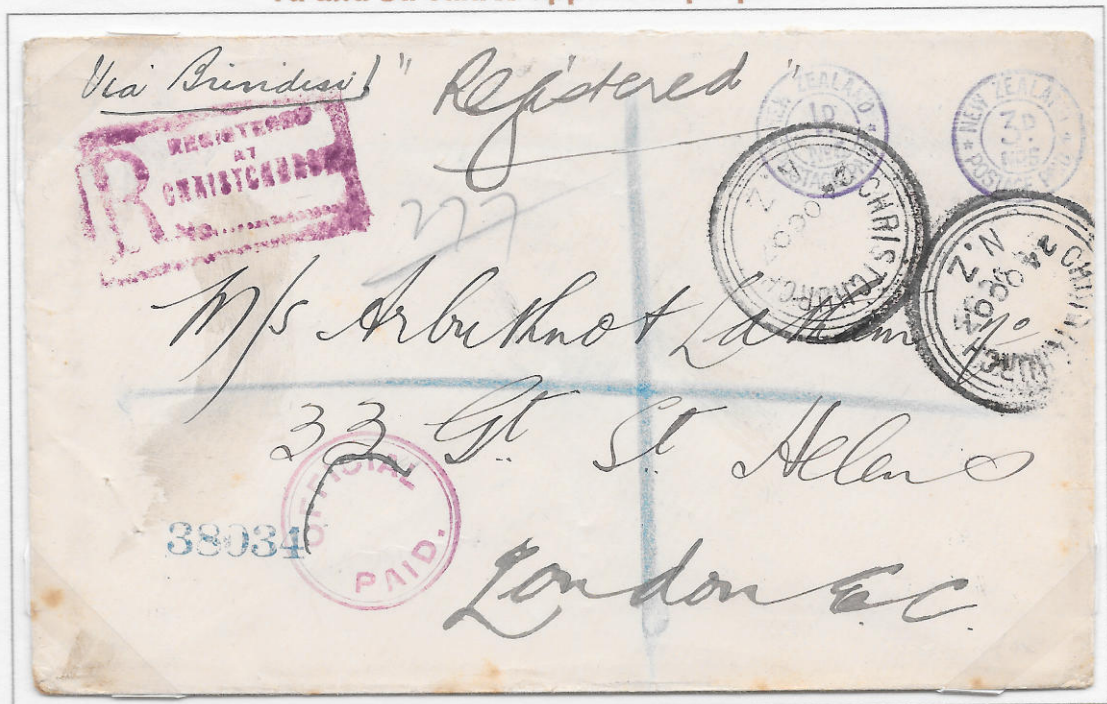 Via Brindisi
"Registered"
REGISTERED
AT
CHRISTCHURCH
R
No
NEW ZEALAND
1D
POSTAGE PAID
NEW ZEALAND
3D
POSTAGE PAID
277
CHRISTCHURCH N.Z
CHRISTCHURCH N.Z
M/s Arbuthnot Latham & Co
33 Gt. St. Helens
38034
OFFICIAL
PAID.
London E.C.